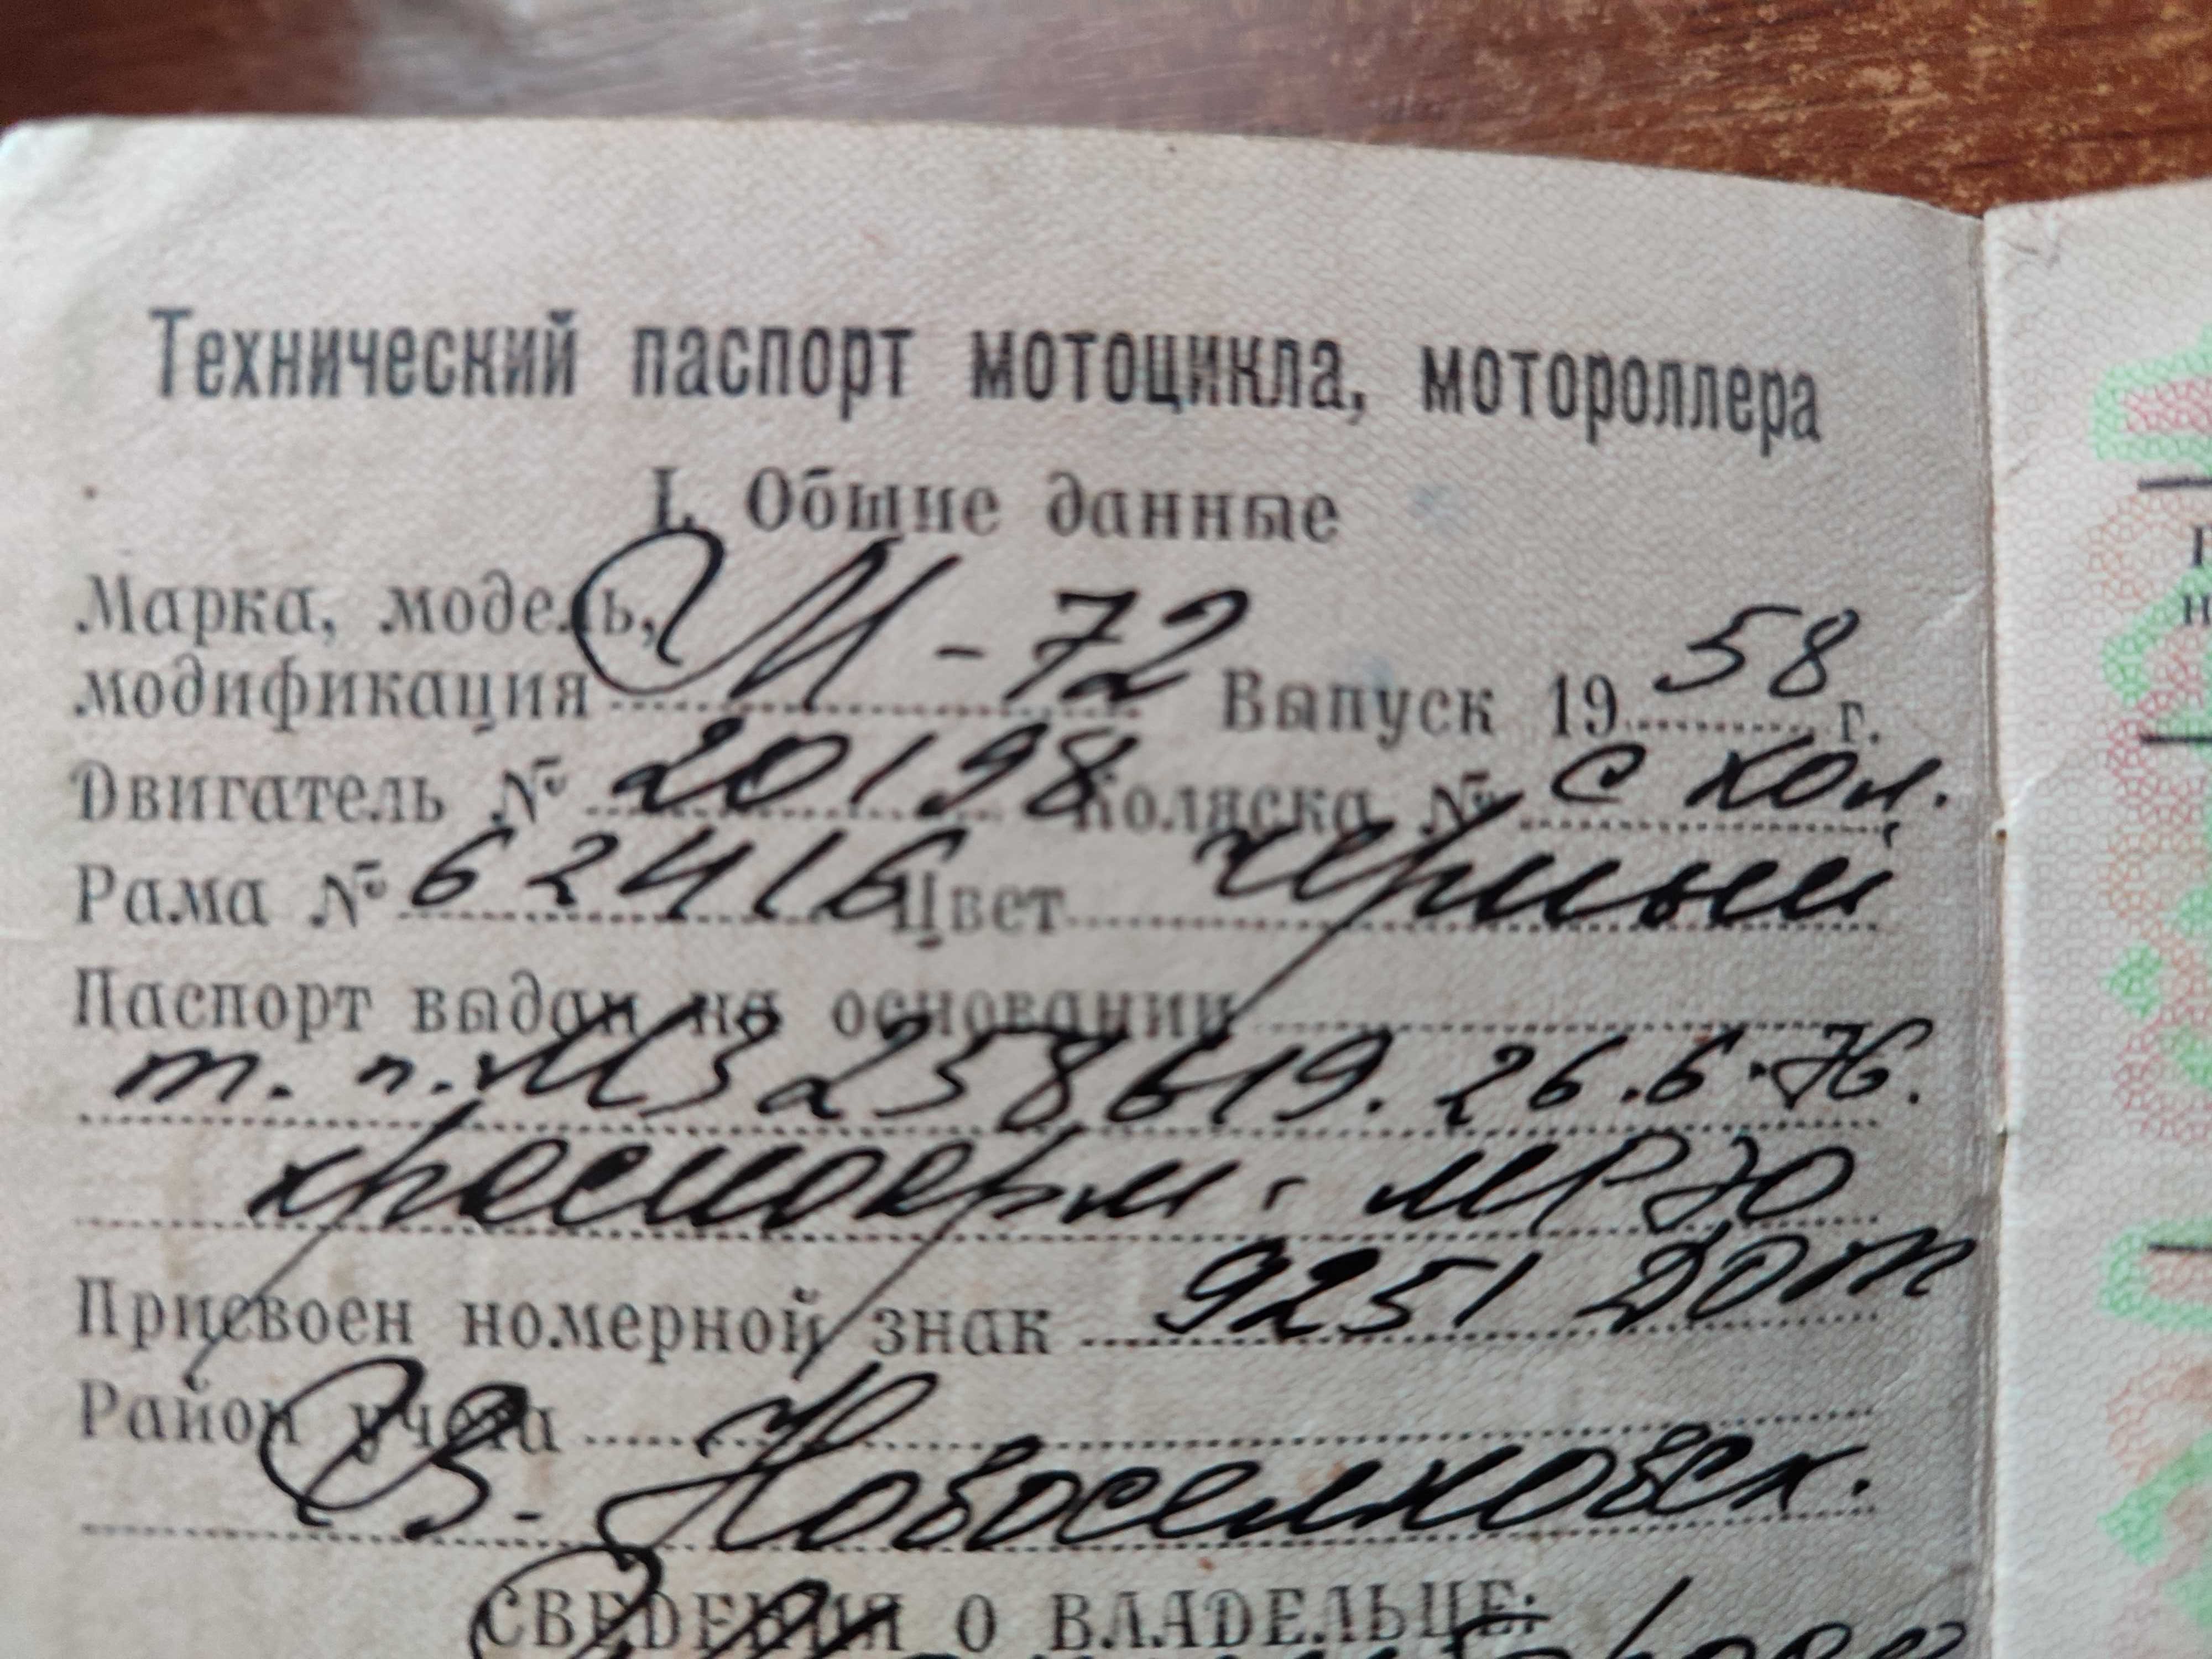 Технический паспорт мотоцикла, мотороллера
I. Общие данные
Марка, модель,
модификация М-72 Выпуск 1958 г.
Двигатель № 20198 Коляска № с кол.
Рама № 62416 Цвет черный
Паспорт выдан на основании
т. п. МЗ 258619. 26.6.76.
красноарм. МРЭО
Присвоен номерной знак 9251 ДОТ
Район учета
В. Новоселковск.
СВЕДЕНИЯ О ВЛАДЕЛЬЦЕ: